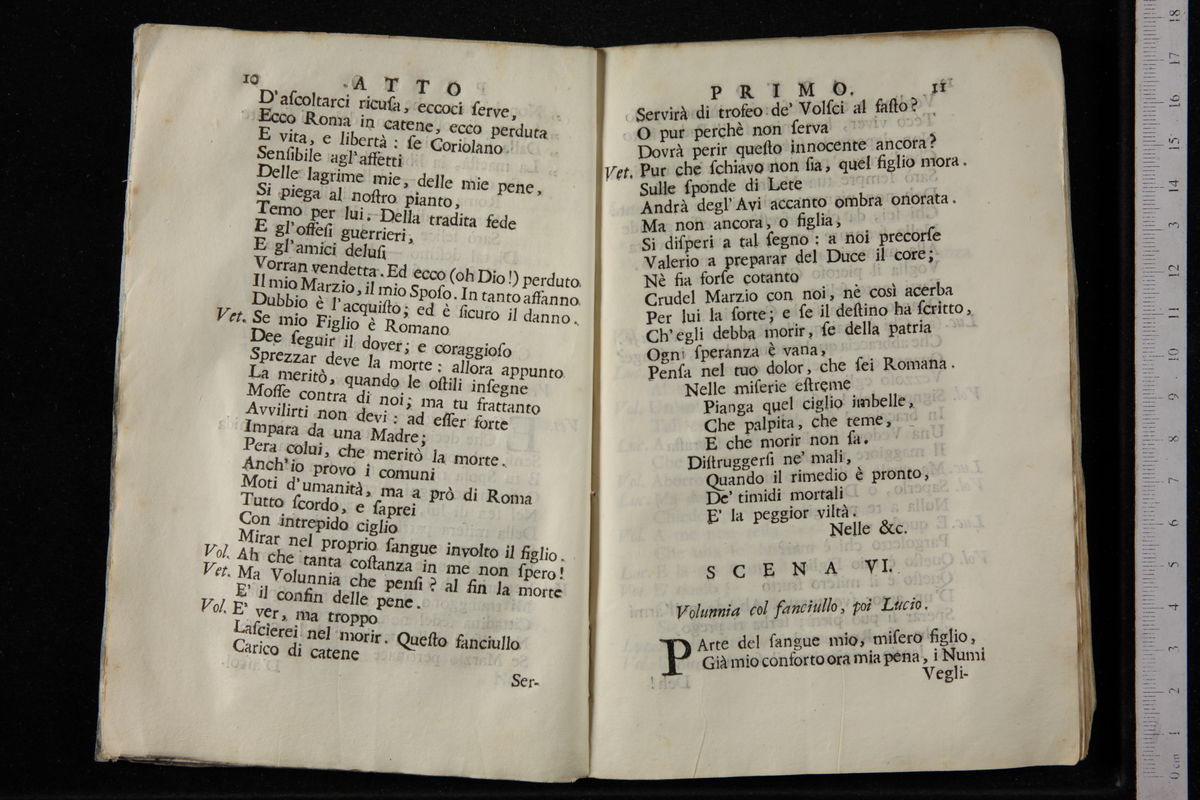 10 ATTO
D'aſcoltarci ricuſa, eccoci ſerve,
Ecco Roma in catene, ecco perduta
E vita, e libertà : ſe Coriolano
Senſibile agl'affetti
Delle lagrime mie, delle mie pene,
Si piega al noſtro pianto,
Temo per lui. Della tradita fede
E gl'offeſi guerrieri,
E gl'amici deluſi
Vorran vendetta. Ed ecco (oh Dio!) perduto
Il mio Marzio, il mio Spoſo. In tanto affanno
Dubbio è l'acquiſto; ed è ſicuro il danno.
Vet. Se mio Figlio è Romano
Dee ſeguir il dover; e coraggioſo
Sprezzar deve la morte: allora appunto
La meritò, quando le oſtili inſegne
Moſſe contra di noi; ma tu frattanto
Avvilirti non devi: ad eſſer forte
Impara da una Madre;
Pera colui, che meritò la morte.
Anch'io provo i comuni
Moti d'umanità, ma a prò di Roma
Tutto ſcordo, e ſaprei
Con intrepido ciglio
Mirar nel proprio ſangue involto il figlio.
Vol. Ah che tanta coſtanza in me non ſpero!
Vet. Ma Volunnia che penſi? al fin la morte
E' il confin delle pene.
Vol. E' ver, ma troppo
Laſcierei nel morir. Queſto fanciullo
Carico di catene
Ser-
PRIMO. 11
Servirà di trofeo de' Volſci al faſto?
O pur perchè non ſerva
Dovrà perir queſto innocente ancora?
Vet. Pur che ſchiavo non ſia, quel figlio mora.
Sulle ſponde di Lete
Andrà degl'Avi accanto ombra onorata.
Ma non ancora, o figlia,
Si diſperi a tal ſegno : a noi precorſe
Valerio a preparar del Duce il core;
Nè fia forſe cotanto
Crudel Marzio con noi, nè così acerba
Per lui la ſorte; e ſe il deſtino ha ſcritto,
Ch'egli debba morir, ſe della patria
Ogni ſperanza è vana,
Penſa nel tuo dolor, che ſei Romana.
Nelle miſerie eſtreme
Pianga quel ciglio imbelle,
Che palpita, che teme,
E che morir non ſa.
Diſtruggerſi ne' mali,
Quando il rimedio è pronto,
De' timidi mortali
E' la peggior viltà.
Nelle &c.
SCENA VI.
Volunnia col fanciullo, poi Lucio.
PArte del ſangue mio, miſero figlio,
Già mio conforto ora mia pena, i Numi
Vegli-